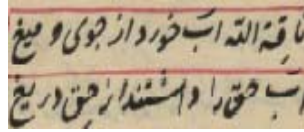 ناقة الله آب خورد از جوی و میغ
آب حق را داشتند از حق دریغ